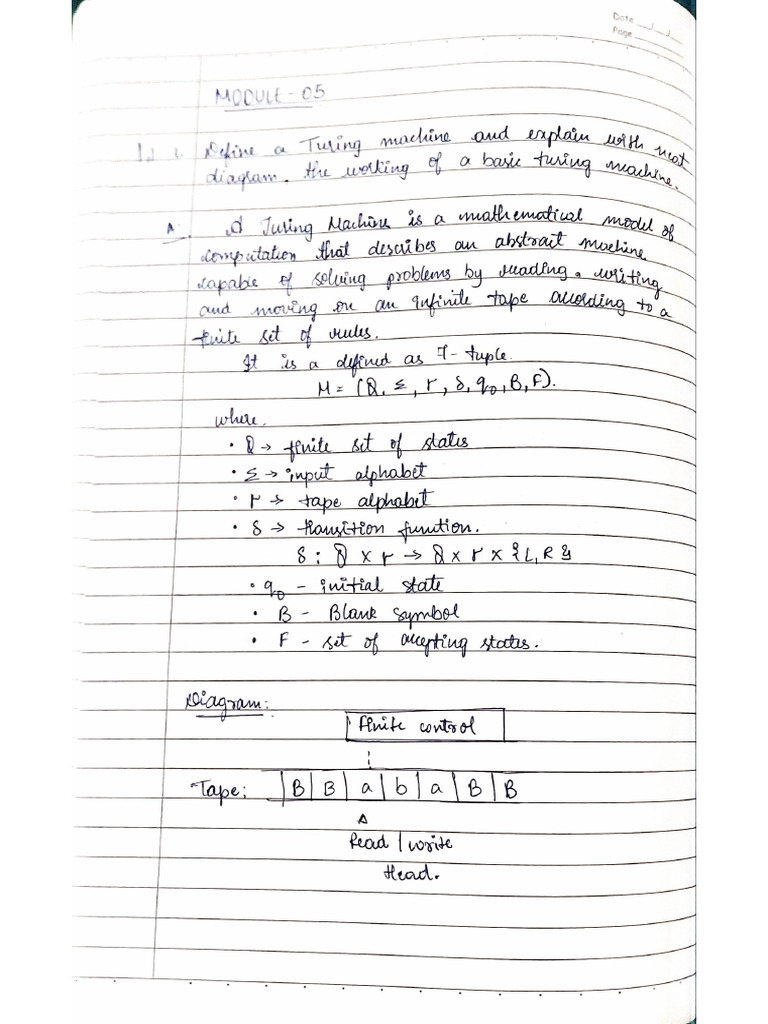 Date __/__/__
Page
MODULE - 05
1. Define a Turing machine and explain with neat
diagram. the working of a basic turing machine.
A. A Turing Machine is a mathematical model of
computation that describes an abstract machine
capable of solving problems by reading, writing
and moving on an infinite tape according to a
finite set of rules.
It is a defined as 7-tuple.
M = (Q, Σ, Γ, δ, q₀, B, F).
where,
• Q → finite set of states
• Σ → input alphabet
• Γ → tape alphabet
• δ → transition function.
δ : Q × Γ → Q × Γ × {L, R}
• q₀ - initial state
• B - Blank symbol
• F - set of accepting states.
Diagram:
finite control
Tape: B B a b a B B
Read / write
Head.